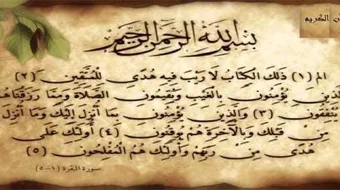 القرآن الكريم
بسم الله الرحمن الرحيم
الم (١) ذلك الكتاب لا ريب فيه هدى للمتقين (٢)
الذين يؤمنون بالغيب ويقيمون الصلاة ومما رزقناهم
ينفقون (٣) والذين يؤمنون بما أنزل إليك وما أنزل
من قبلك وبالآخرة هم يوقنون (٤) أولئك على
هدى من ربهم وأولئك هم المفلحون (٥)
سورة البقرة (١-٥)